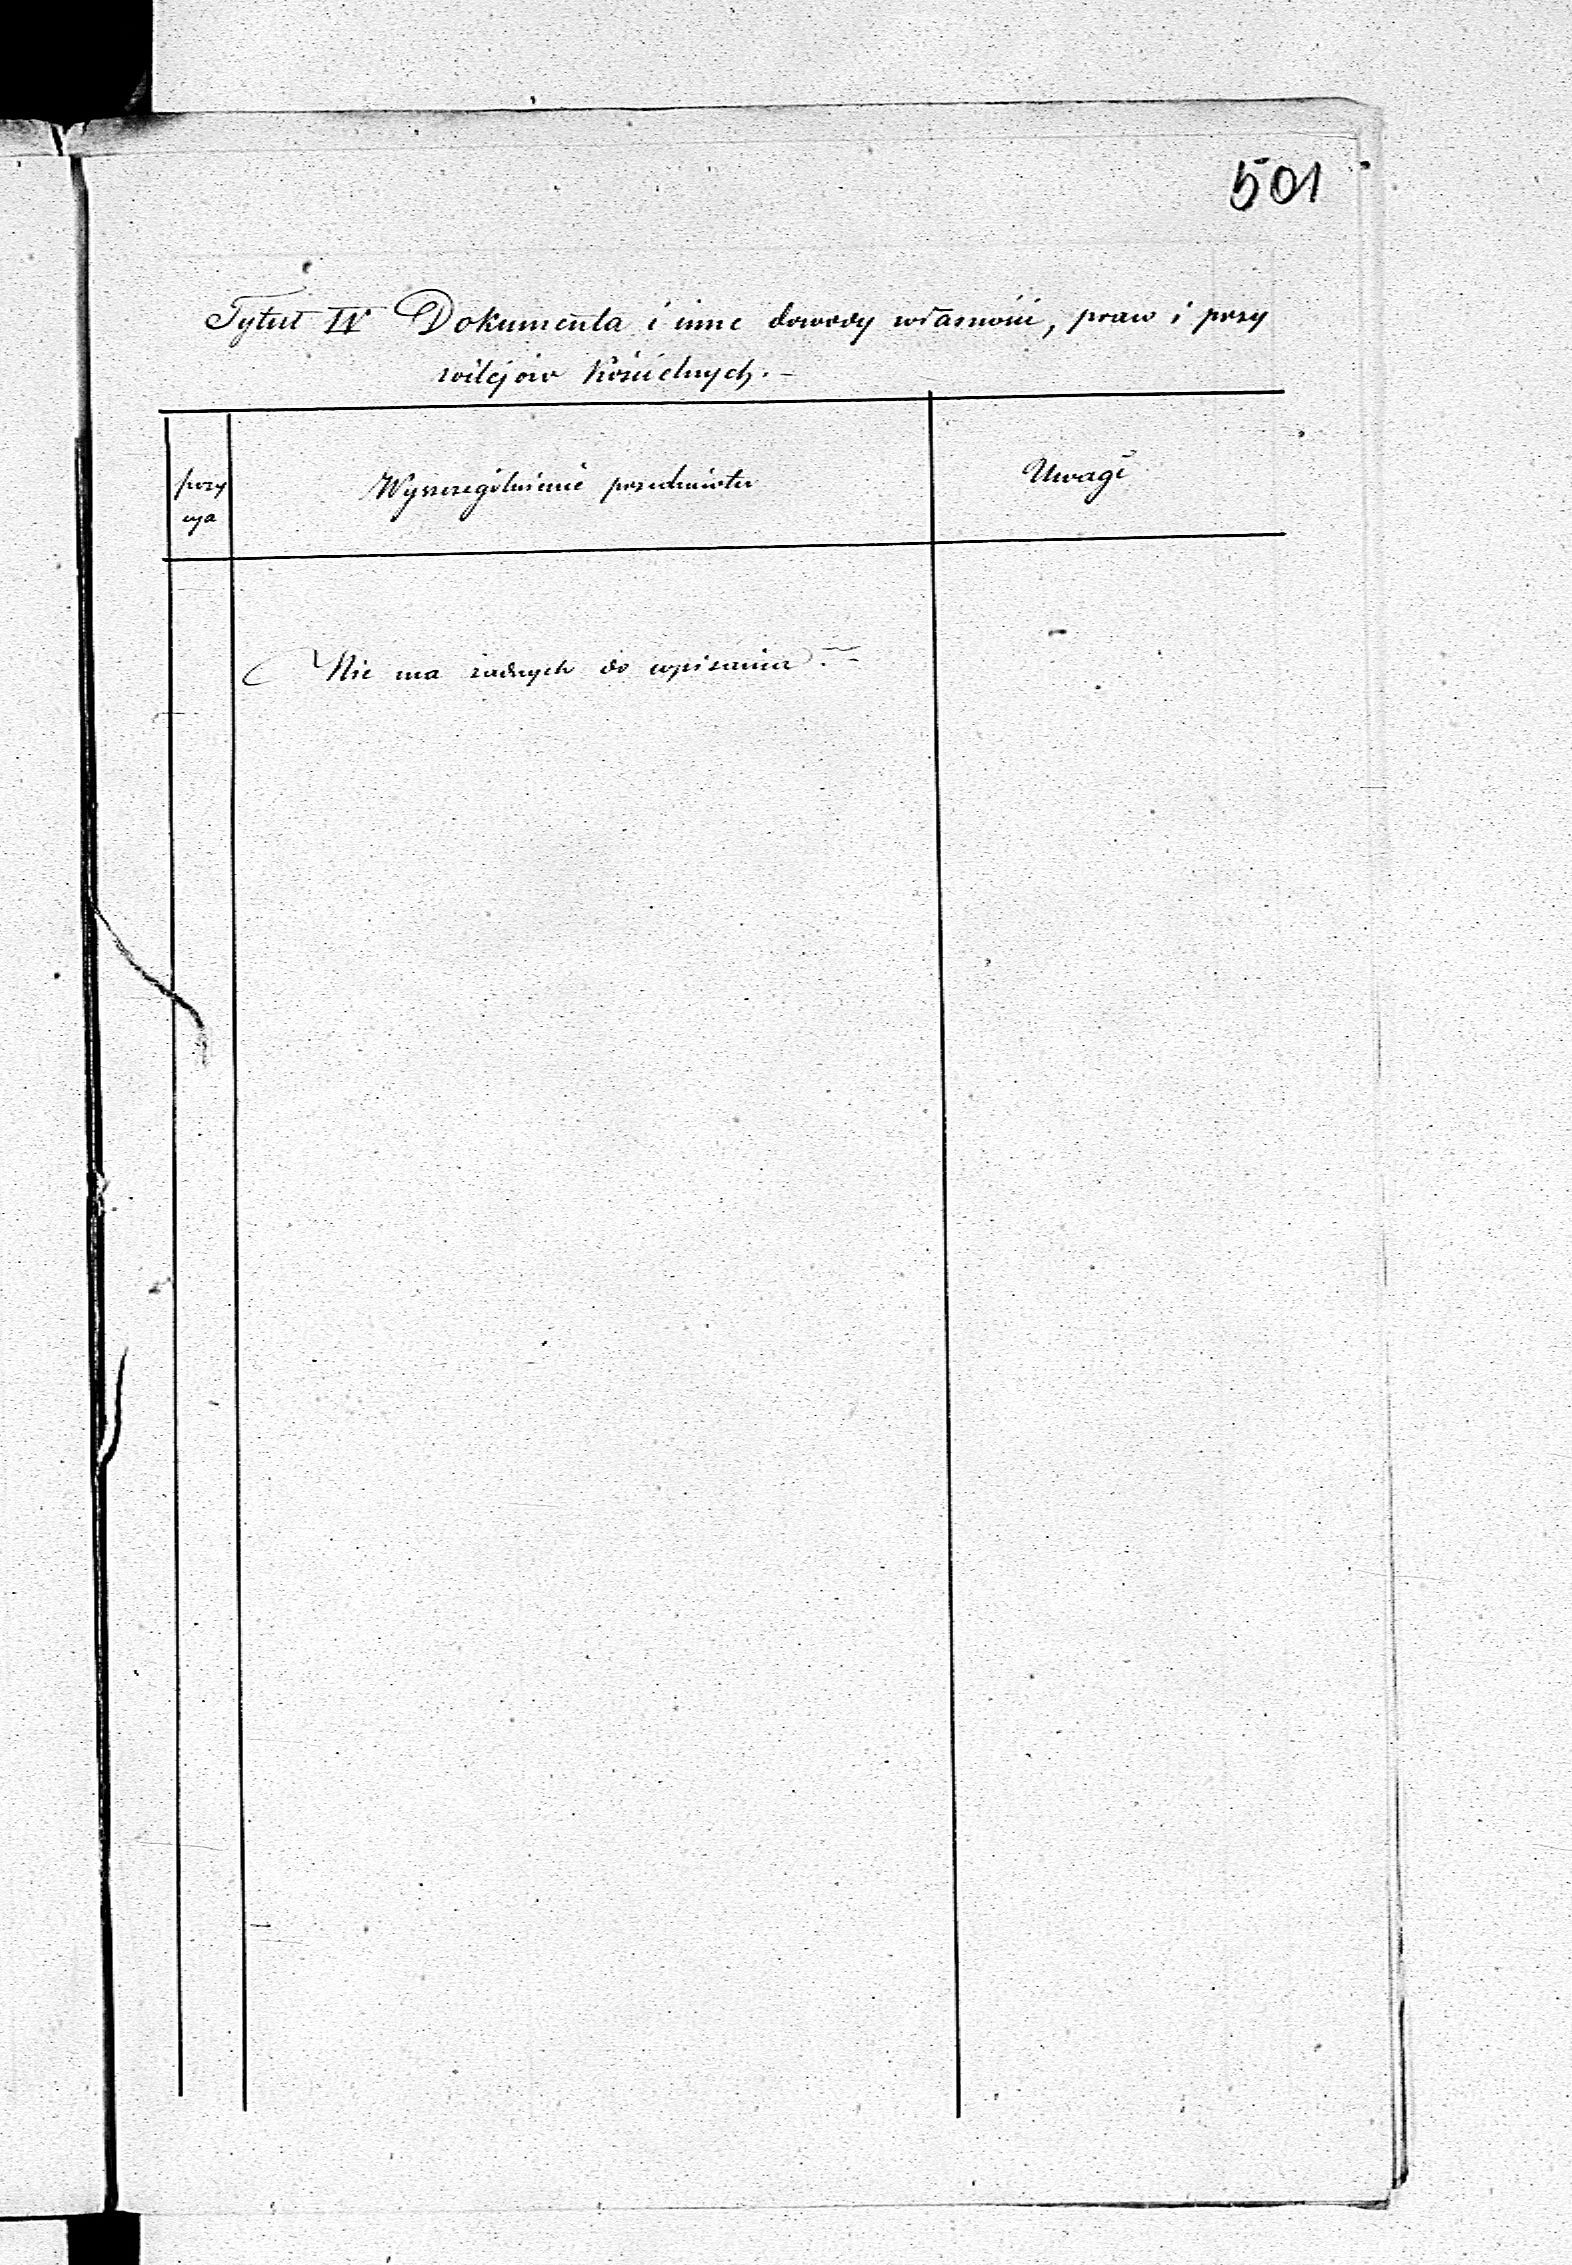 501
Tytuł IV Dokumenta i inne dowody własności, praw i przy
wilejów kościelnych. -
pozy
cya
Wyszczególnienie przedmiotu
Uwagi
Nie ma żadnych do wpisania. -